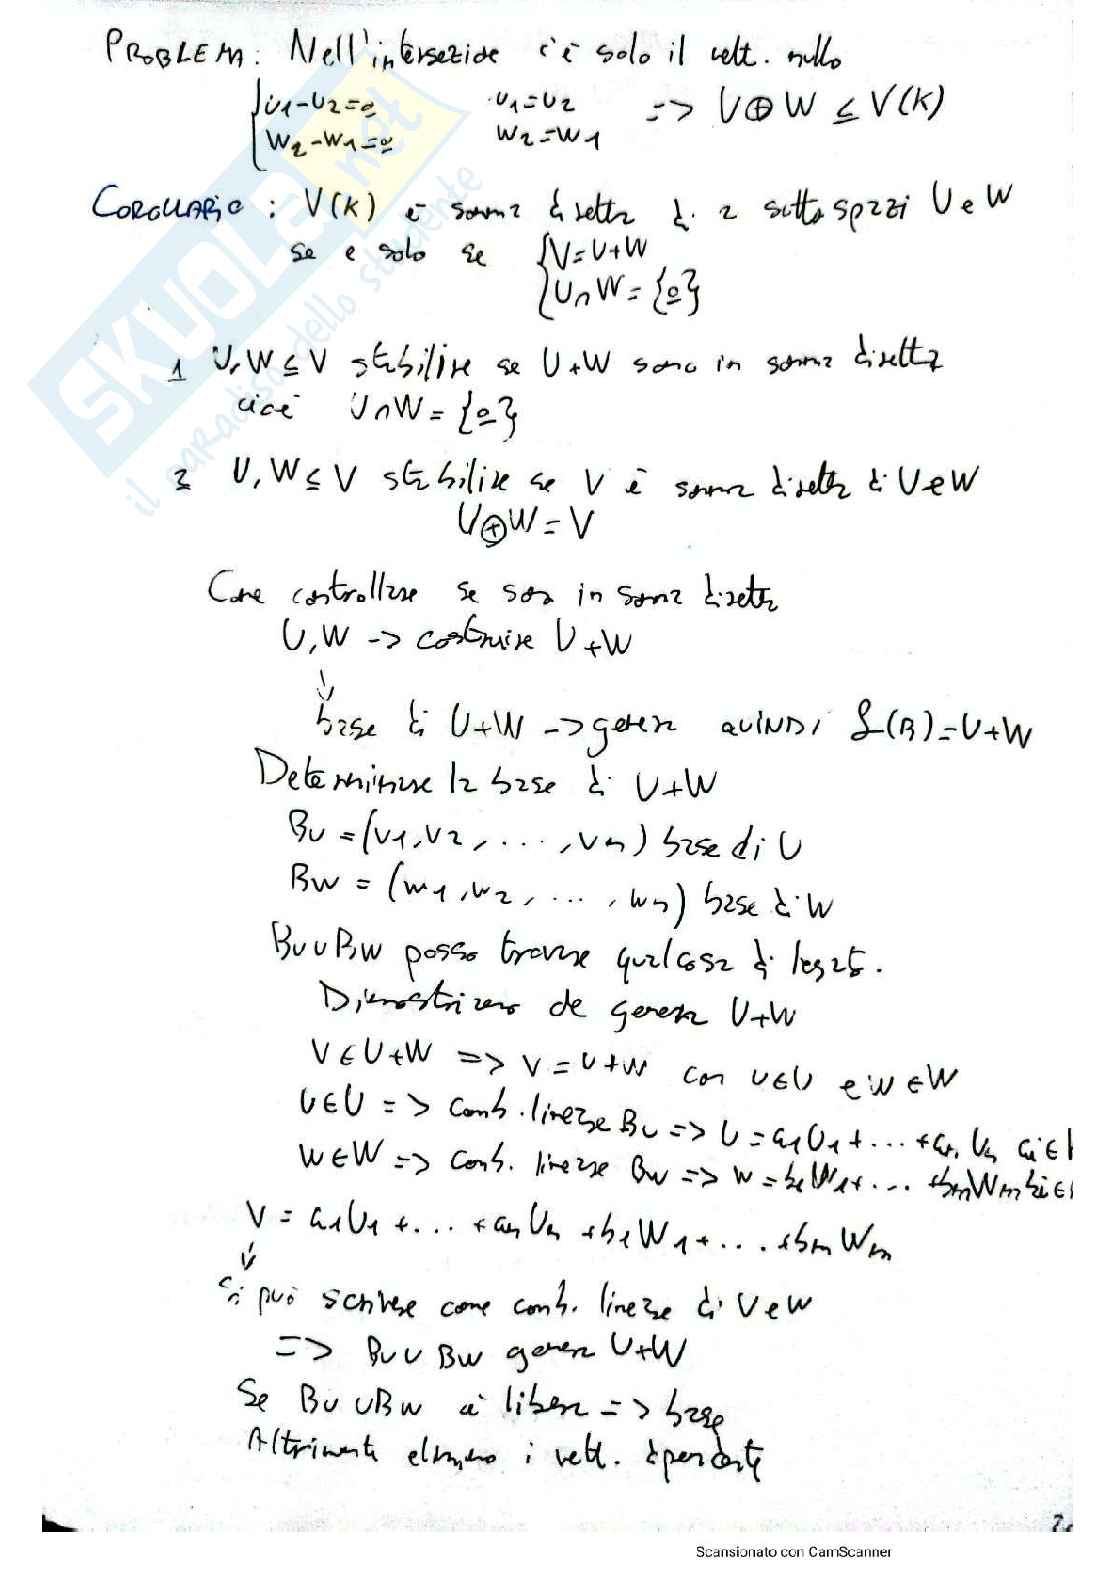 PROBLEMA: Nell'intersezione c'è solo il vett. nullo
{u1-u2=0 u1=u2 => U⊕W ≤ V(K)
{w2-w1=0 w2=w1
COROLLARIO: V(K) è somma diretta di 2 sottospazi U e W
se e solo se {V=U+W
{U∩W={0}
1 U,W≤V stabilire se U+W sono in somma diretta
cioè U∩W={0}
2 U,W≤V stabilire se V è somma diretta di U e W
U⊕W=V
Come controllare se sono in somma diretta
U,W -> costruire U+W
↓
base di U+W -> genera QUINDI L(B)=U+W
Determinare la base di U+W
BU=(v1,v2,...,vn) base di U
BW=(w1,w2,...,wn) base di W
BU∪BW posso trovare qualcosa di legato.
Dimostriamo che genera U+W
V∈U+W => v=u+w con u∈U e w∈W
U∈U => comb. lineare BU => U=a1U1+...+anUn ai∈
W∈W => comb. lineare BW => w=b1W1+...+bmWm bi∈
V=a1U1+...+anUn+b1W1+...+bmWm
↓
Si può scrivere come comb. lineare di U e W
=> BU∪BW genera U+W
Se BU∪BW è libera => base
Altrimenti elimino i vett. dipendenti
Scansionato con CamScanner
SKUOLA.net
il paradiso dello studente